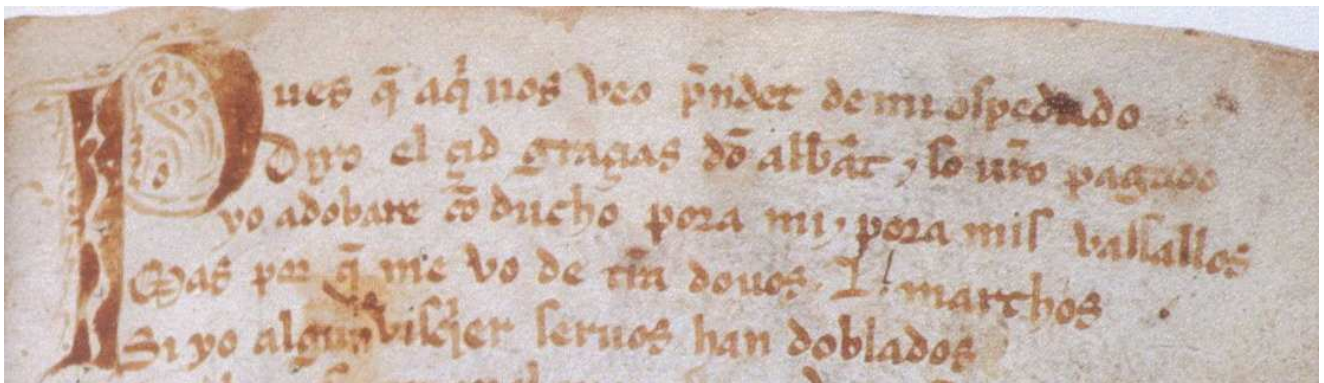 Pues q̄ aq̄ uos veo p̄ndet de mi ospedado
Dixo el çid graçias dō albar̄t ⁊ so ur̄o pagado
yo adobare cō ducho pora mi ⁊ pora mis vassallos
Mas por q̄ me vo de tr̄ra douos .L. marchos
Si yo algun dia visq̄er seruos han doblados